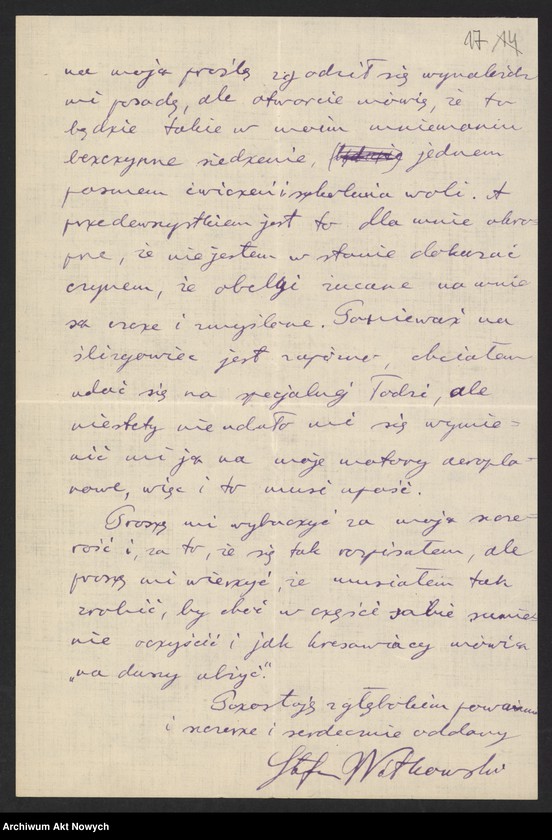 17 14
na moją prośbę zgodził się wynaleźć
mi posadę, ale otwarcie mówię, że to
będzie takie w moim mniemaniu
bezczynne siedzenie, jednem
pasmem ćwiczeń i szkolenia woli. A
przedewszystkiem jest to dla mnie okro-
pne, że nie jestem w stanie dokazać
czynem, że obelgi rzucane na mnie
są czcze i zmyślone. Ponieważ na
ślizgowiec jest zapóźno, chciałem
udać się na specjalnej łodzi, ale
niestety nie udało mi się wymie-
nić mi ją na moje motory aeropla-
nowe, więc i to musi upaść.
Proszę mi wybaczyć za moją szcze-
rość i, za to, że się tak rozpisałem, ale
proszę mi wierzyć, że musiałem tak
zrobić, by choć w części sobie sumie-
nie oczyścić i jak kresowiacy mówią
„na duszy ulżyć".
Pozostaję z głębokiem poważaniem
i szczerze i serdecznie oddany
Stefan Witkowski
Archiwum Akt Nowych